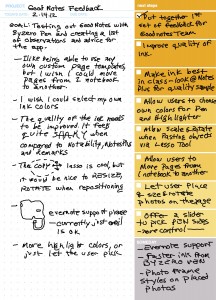 Good Notes Feedback
2.19.12
Goal: Testing out GoodNotes with
Syzero Pen and creating a list
of observations and advice for
the app.
- I like being able to use my
own custom page templates
but I wish I could move
pages from 1 notebook
to another.
- I wish I could select my own
ink colors
- The quality of the ink needs
to be improved. It feels
quite SHAKY when
compared to Notability, Noteshelf
and Remarks
- The copy lasso is cool, but
it would be nice to RESIZE,
ROTATE when repositioning
- evernote support please
- currently just email
is ok.
- More highlight colors, or
just let the user pick.
Next steps
Put together 1st
set of feedback for
Goodnotes team
Improve quality of
ink.
Make ink best
in class - look @ Notes
Plus for quality sample
Allow users to choose
own colors for Pen
and Highlighter
Allow Scale & Rotate
when Pasting objects
via Lasso Tool
Allow users to
Move Pages from
1 notebook to another
Let user place
& size & rotate
photos on the page
Offer a slider
to pick PEN sizes
- more control -
- Evernote Support
- Faster ink from
SYZERO PEN
- Photo frame
styles on placed
photos